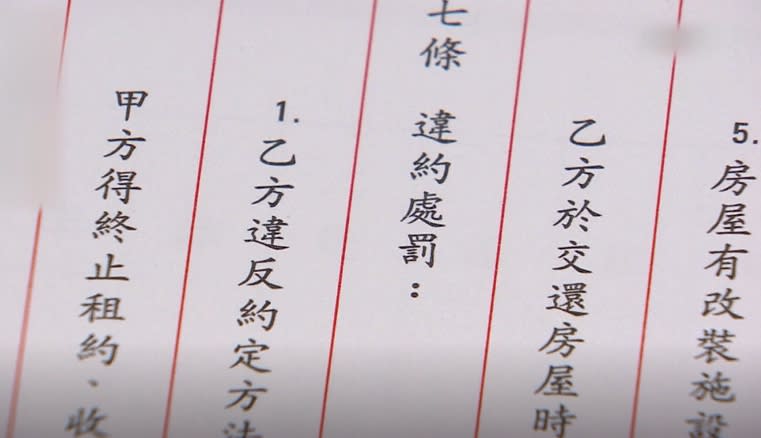 5.房屋有改裝施設
乙方於交還房屋時
七條 違約處罰：
1.乙方違反約定方法
甲方得終止租約、收